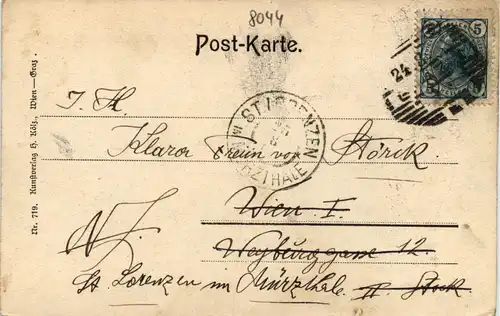 8044
Post-Karte.
5 5
24
J. H.
ST. LORENZEN
IM MÜRZTHALE
Klaror Freiin von Störck.
Wien I.
Weyburggasse 12.
II. Stock
N.
St. Lorenzen im Mürzthale
Nr. 719. Kunstverlag H. Kölz, Wien—Graz.